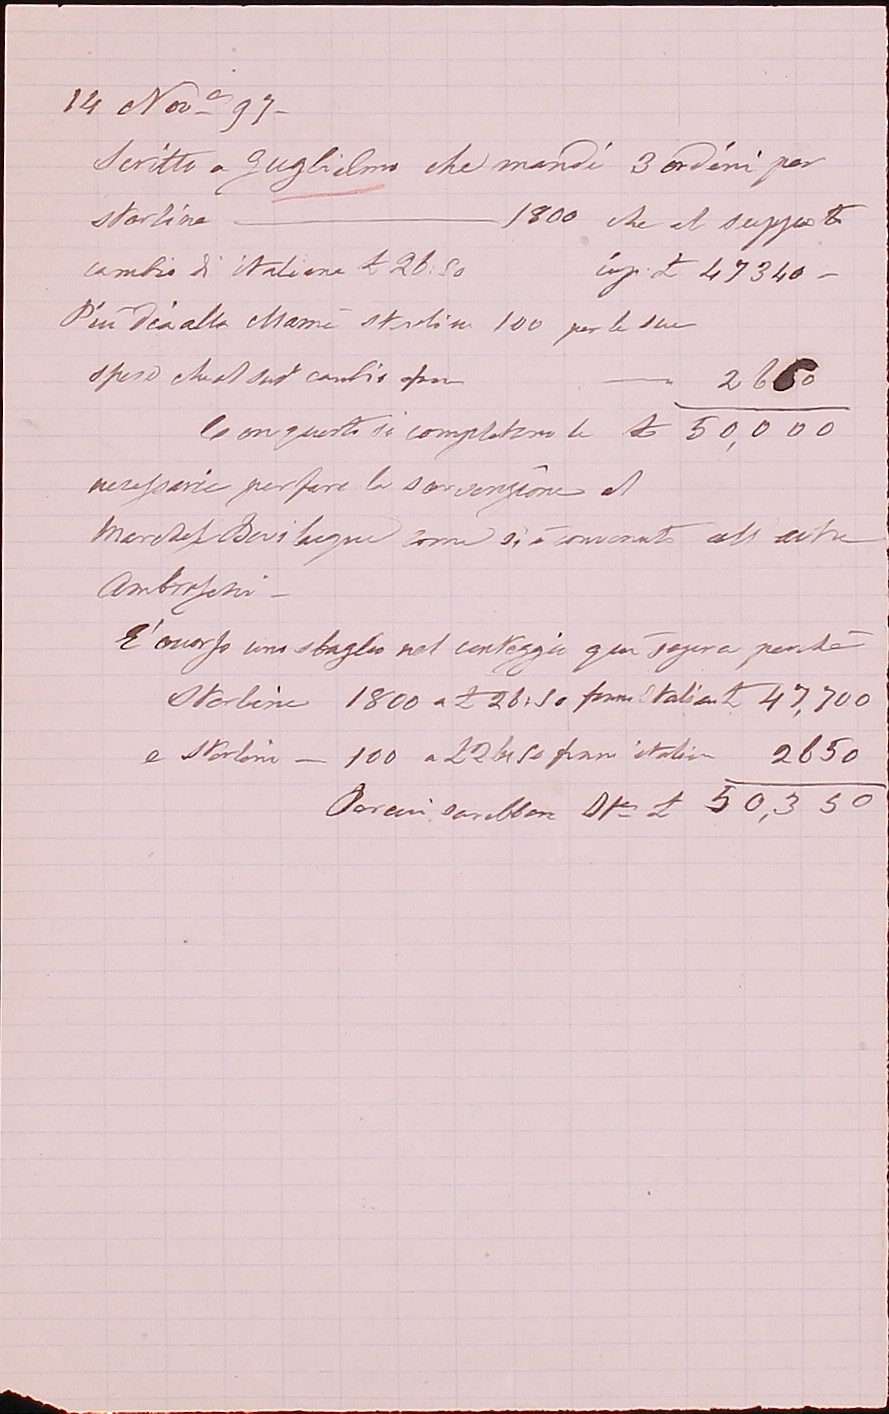 14 Nov.e 97 -
Scritto a Guglielmo che mandi 3 ordini per
sterline ——— 1800 che al supposto
cambio di italiane £ 26:50 £ 47340 -
Più dia alla Mamà sterline 100 per le sue
spese che al sud° cambio fanno — 2650
Con questo si completano le £ 50,000
necessarie per fare la sovvenzione al
Marchese Bevilacqua come si è convenuto coll'
Ambrosini -
E' occorso uno sbaglio nel conteggio qui sopra perchè
Sterline 1800 a £ 26:50 fanno Italiane £ 47,700
e Sterline — 100 a £ 26:50 fanno italiane 2650
Perciò sarebbero £ 50,350